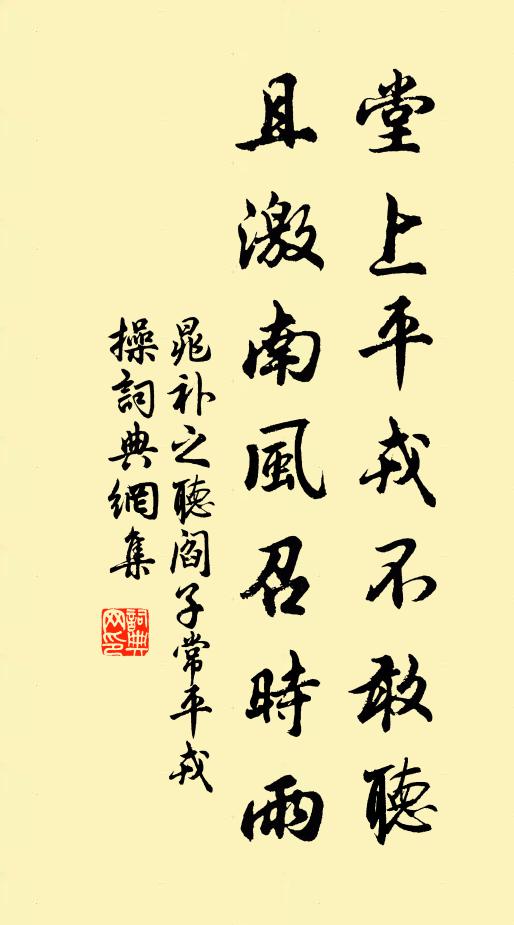 堂上平戎不敢聽
且激南風召時雨
晁补之聽閻子常平戎
操詞典網集
詞典網印